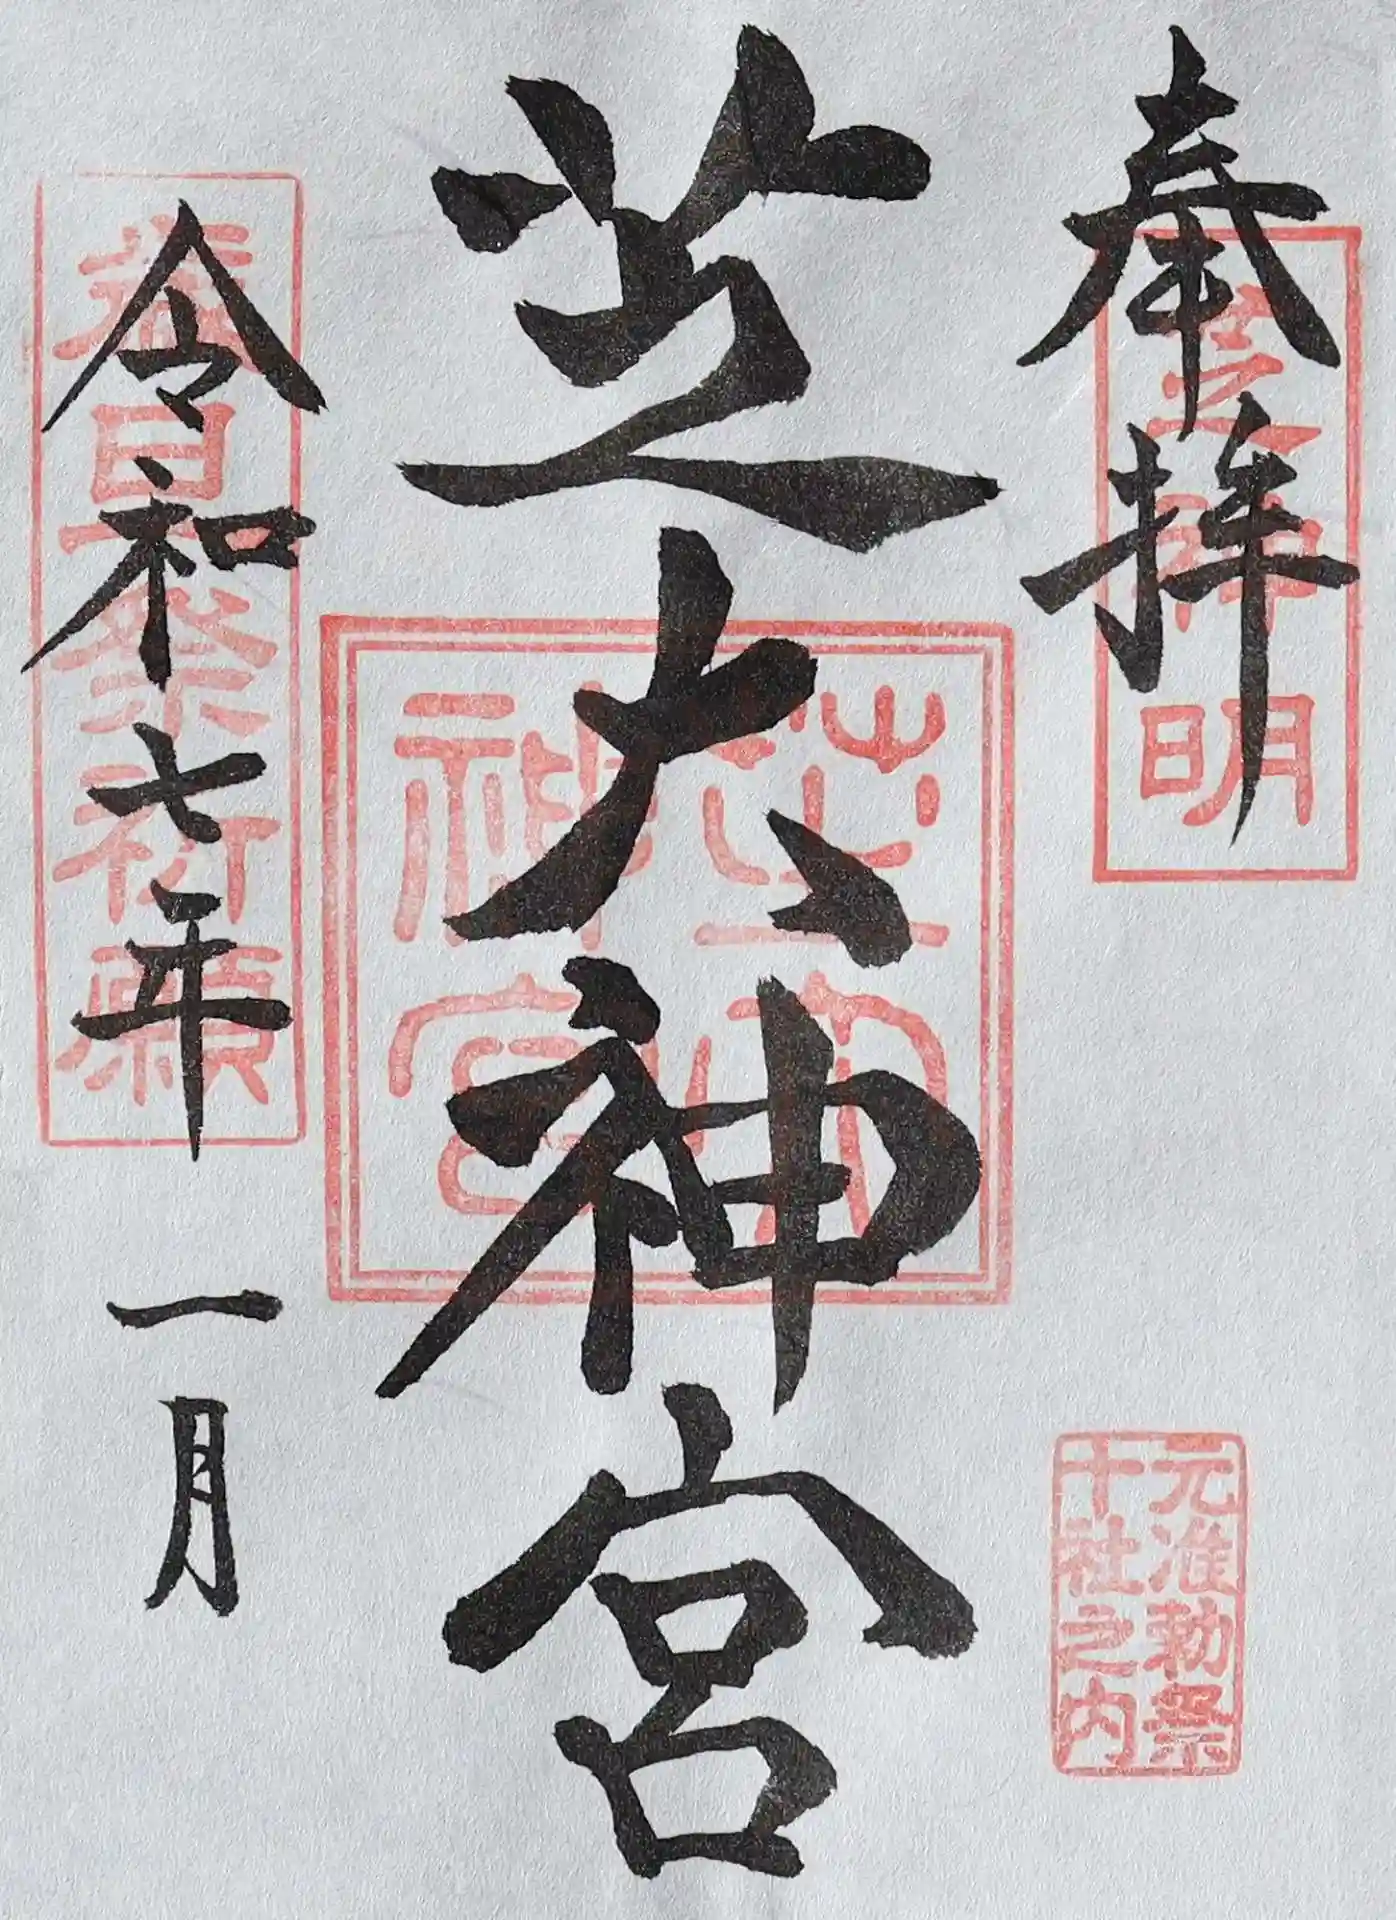 奉拝
芝神明
元准勅祭
十社之内
芝大神宮
芝大神宮
令和七年一月
歳旦祭祈願